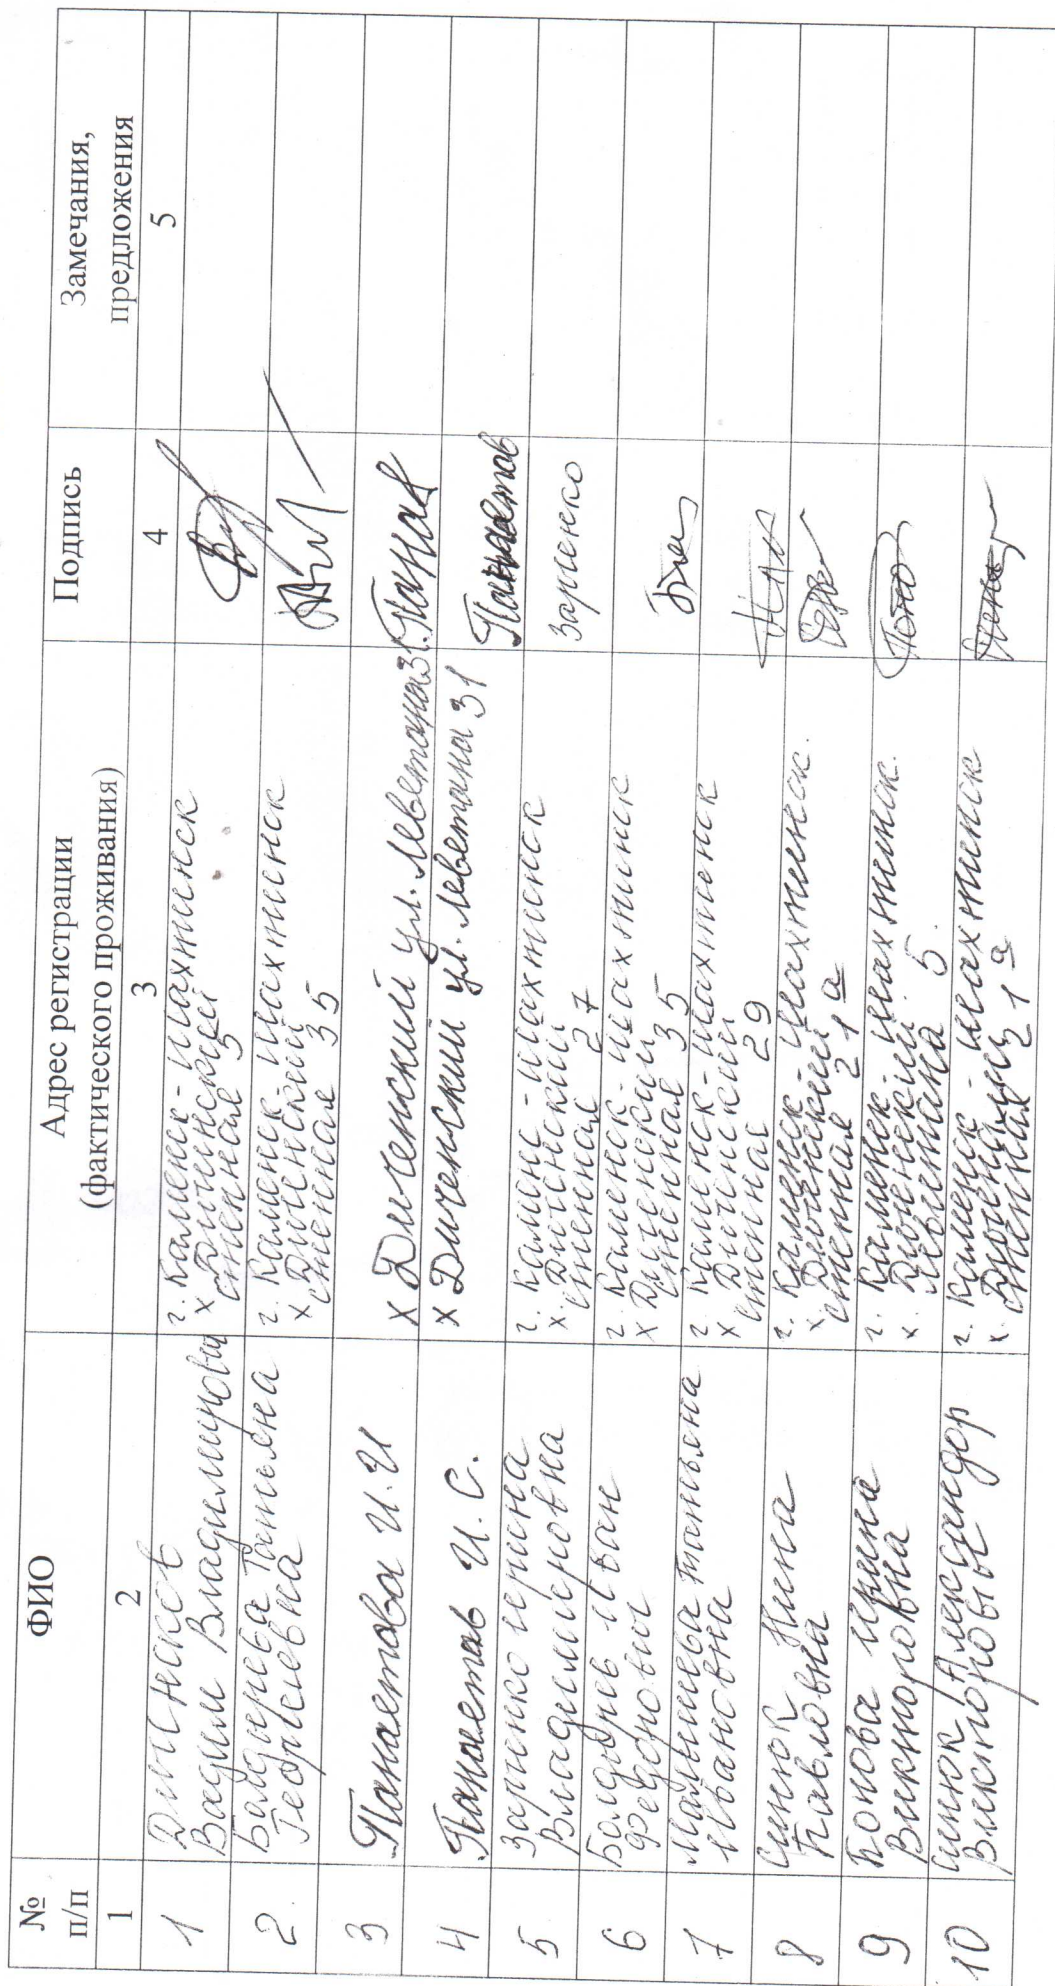 № п/п
ФИО
Адрес регистрации
(фактического проживания)
Подпись
Замечания,
предложения
1 2 3 4 5
1
Вадим Владимирович
г. Каменск-Шахтинск
х Диченский
степная 5
2.
Болдырева Татьяна
Георгиевна
г. Каменск-Шахтинск
х Диченский
степная 35
3
Панаетова И.И
х Диченский ул. Левитана 31.
4
Панаетов И.С.
х Диченский ул. Левитана 31
Панаетов
5
Зарченко Ирина
Владимировна
г. Каменс-Шахтинск
х. Диченский
степная 27
Зарченко
6
Болдырев Иван
Федорович
г. Каменск-Шахтинск
х Диченский
степная 35
7
Малышева Татьяна
Ивановна
г. Каменск-Шахтинск
х Диченский
степная 29
8
Синюк Нина
Павловна
г. Каменск-Шахтинск.
х Диченский
степная 21а
9
Викторовна
г. Каменск-Шахтинск.
х. Диченский.
5.
10
Синюк Александр
Викторовыч
г. Каменск-Шахтинск
х. Диченский
степная 21а